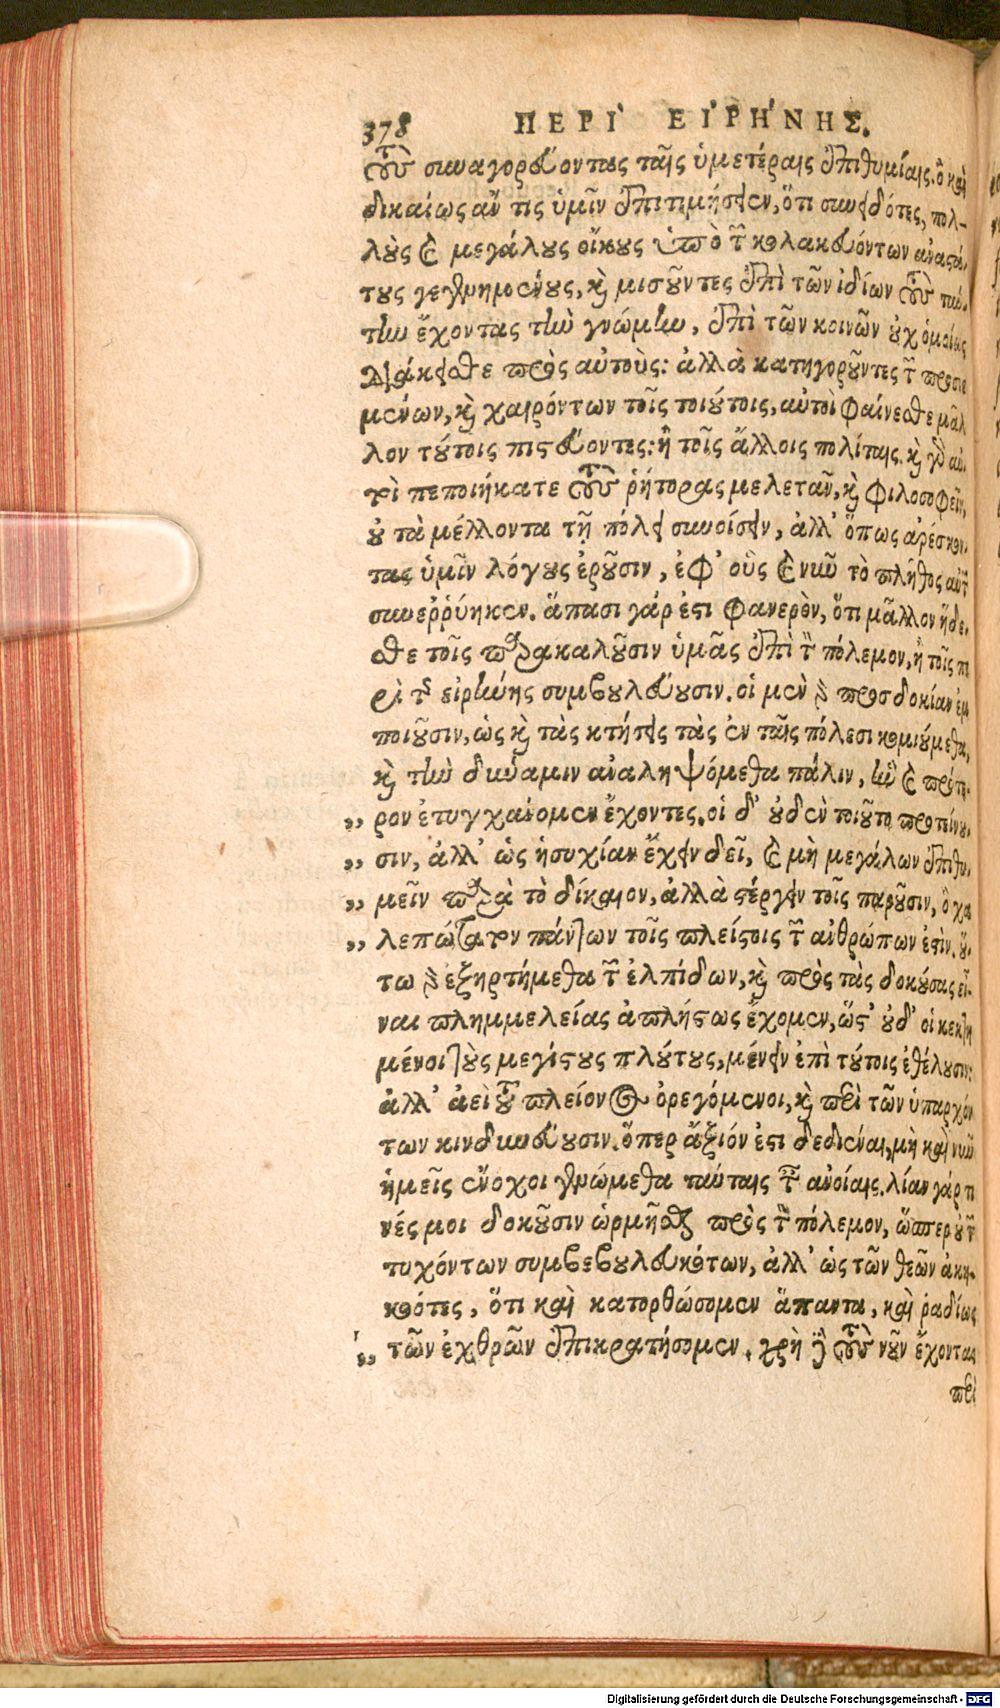 378 ΠΕΡΙ ΕΙΡΗΝΗΣ.
τοὺς συναγορεύοντας ταῖς ὑμετέραις ἐπιθυμίαις. ὃ καὶ
δικαίως ἄν τις ὑμῖν ἐπιτιμήσειεν, ὅτι συνειδότες, πολ-
λοὺς καὶ μεγάλους οἴκους ὑπὸ τῶν κολακευόντων ἀναστά-
τους γεγενημένους, καὶ μισοῦντες ἐπὶ τῶν ἰδίων τοὺς ταύ-
την ἔχοντας τὴν γνώμην, ἐπὶ τῶν κοινῶν οὐχ ὁμοίως
διάκεισθε πρὸς αὐτούς: ἀλλὰ κατηγοροῦντες τῶν προσιε
μένων, καὶ χαιρόντων τοῖς τοιούτοις, αὐτοὶ φαίνεσθε μᾶλ
λον τούτοις πιστεύοντες: ἢ τοῖς ἄλλοις πολίταις. καὶ γὰρ αὐ-
τοὶ πεποιήκατε τοὺς ῥήτορας μελετᾶν, καὶ φιλοσοφεῖν,
οὐ τὰ μέλλοντα τῇ πόλει συνοίσειν, ἀλλ' ὅπως ἀρέσκον-
τας ὑμῖν λόγους ἐροῦσιν, ἐφ' οὓς καὶ νῦν τὸ πλῆθος αὐτῶν
συνερρύηκεν. ἅπασι γάρ ἐστι φανερὸν, ὅτι μᾶλλον ἥδε-
σθε τοῖς παρακαλοῦσιν ὑμᾶς ἐπὶ τὸν πόλεμον, ἢ τοῖς πε
ρὶ τῆς εἰρήνης συμβουλεύουσιν. οἱ μὲν γὰρ προσδοκίαν ἐμ
ποιοῦσιν, ὡς καὶ τὰς κτήσεις τὰς ἐν ταῖς πόλεσι κομιούμεθα,
καὶ τὴν δύναμιν ἀναληψόμεθα πάλιν, ἣν καὶ πρότε-
„ ρον ἐτυγχάνομεν ἔχοντες. οἱ δ' οὐδὲν τοιοῦτο προτείνου-
„ σιν, ἀλλ' ὡς ἡσυχίαν ἔχειν δεῖ, καὶ μὴ μεγάλων ἐπιθυ-
„ μεῖν παρὰ τὸ δίκαιον, ἀλλὰ στέργειν τοῖς παροῦσιν, ὃ χα
„ λεπώτατον πάντων τοῖς πλείστοις τῶν ἀνθρώπων ἐστίν. οὕ-
τω γὰρ ἐξηρτήμεθα τῶν ἐλπίδων, καὶ πρὸς τὰς δοκούσας εἶ-
ναι πλημμελείας ἀπλήστως ἔχομεν, ὥστ' οὐδ' οἱ κεκτη
μένοι τοὺς μεγίστους πλούτους, μένειν ἐπὶ τούτοις ἐθέλουσιν:
ἀλλ' ἀεὶ τοῦ πλείονος ὀρεγόμενοι, καὶ περὶ τῶν ὑπαρχόν
των κινδυνεύουσιν. ὅπερ ἄξιόν ἐστι δεδιέναι, μὴ καὶ νῦν
ἡμεῖς ἔνοχοι γενώμεθα ταύταις ταῖς ἀνοίαις. λίαν γάρ τι
νές μοι δοκοῦσιν ὡρμῆσθαι πρὸς τὸν πόλεμον, ὥσπερ οὐ τῶν
τυχόντων συμβεβουλευκότων, ἀλλ' ὡς τῶν θεῶν ἀκη-
κοότες, ὅτι καὶ κατορθώσομεν ἅπαντα, καὶ ῥαδίως
„ τῶν ἐχθρῶν ἐπικρατήσομεν. χρὴ δὲ τοὺς νοῦν ἔχοντας
περὶ
Digitalisierung gefördert durch die Deutsche Forschungsgemeinschaft - DFG